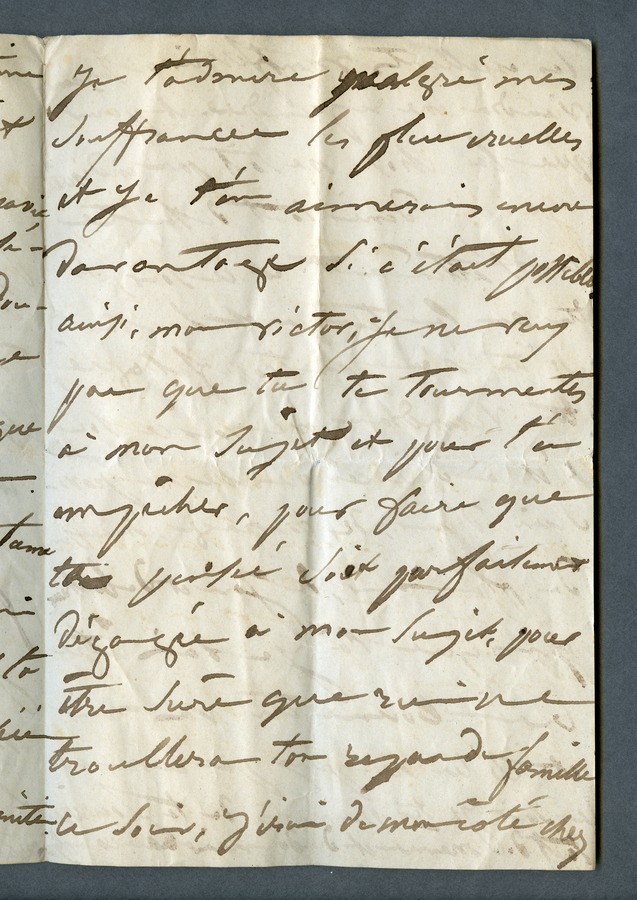 Je t'admire malgré mes
souffrances les plus cruelles
et je t'en aimerais encore
davantage si c'était possible
ainsi, mon Victor, je ne veux
pas que tu te tourmentes
à mon sujet et pour t'en
empêcher, pour faire que
ta pensée soit parfaitement
dégagée à mon sujet, pour
être sûre que rien ne
troublera ton repas de famille
ce soir, j'irai de mon côté chez